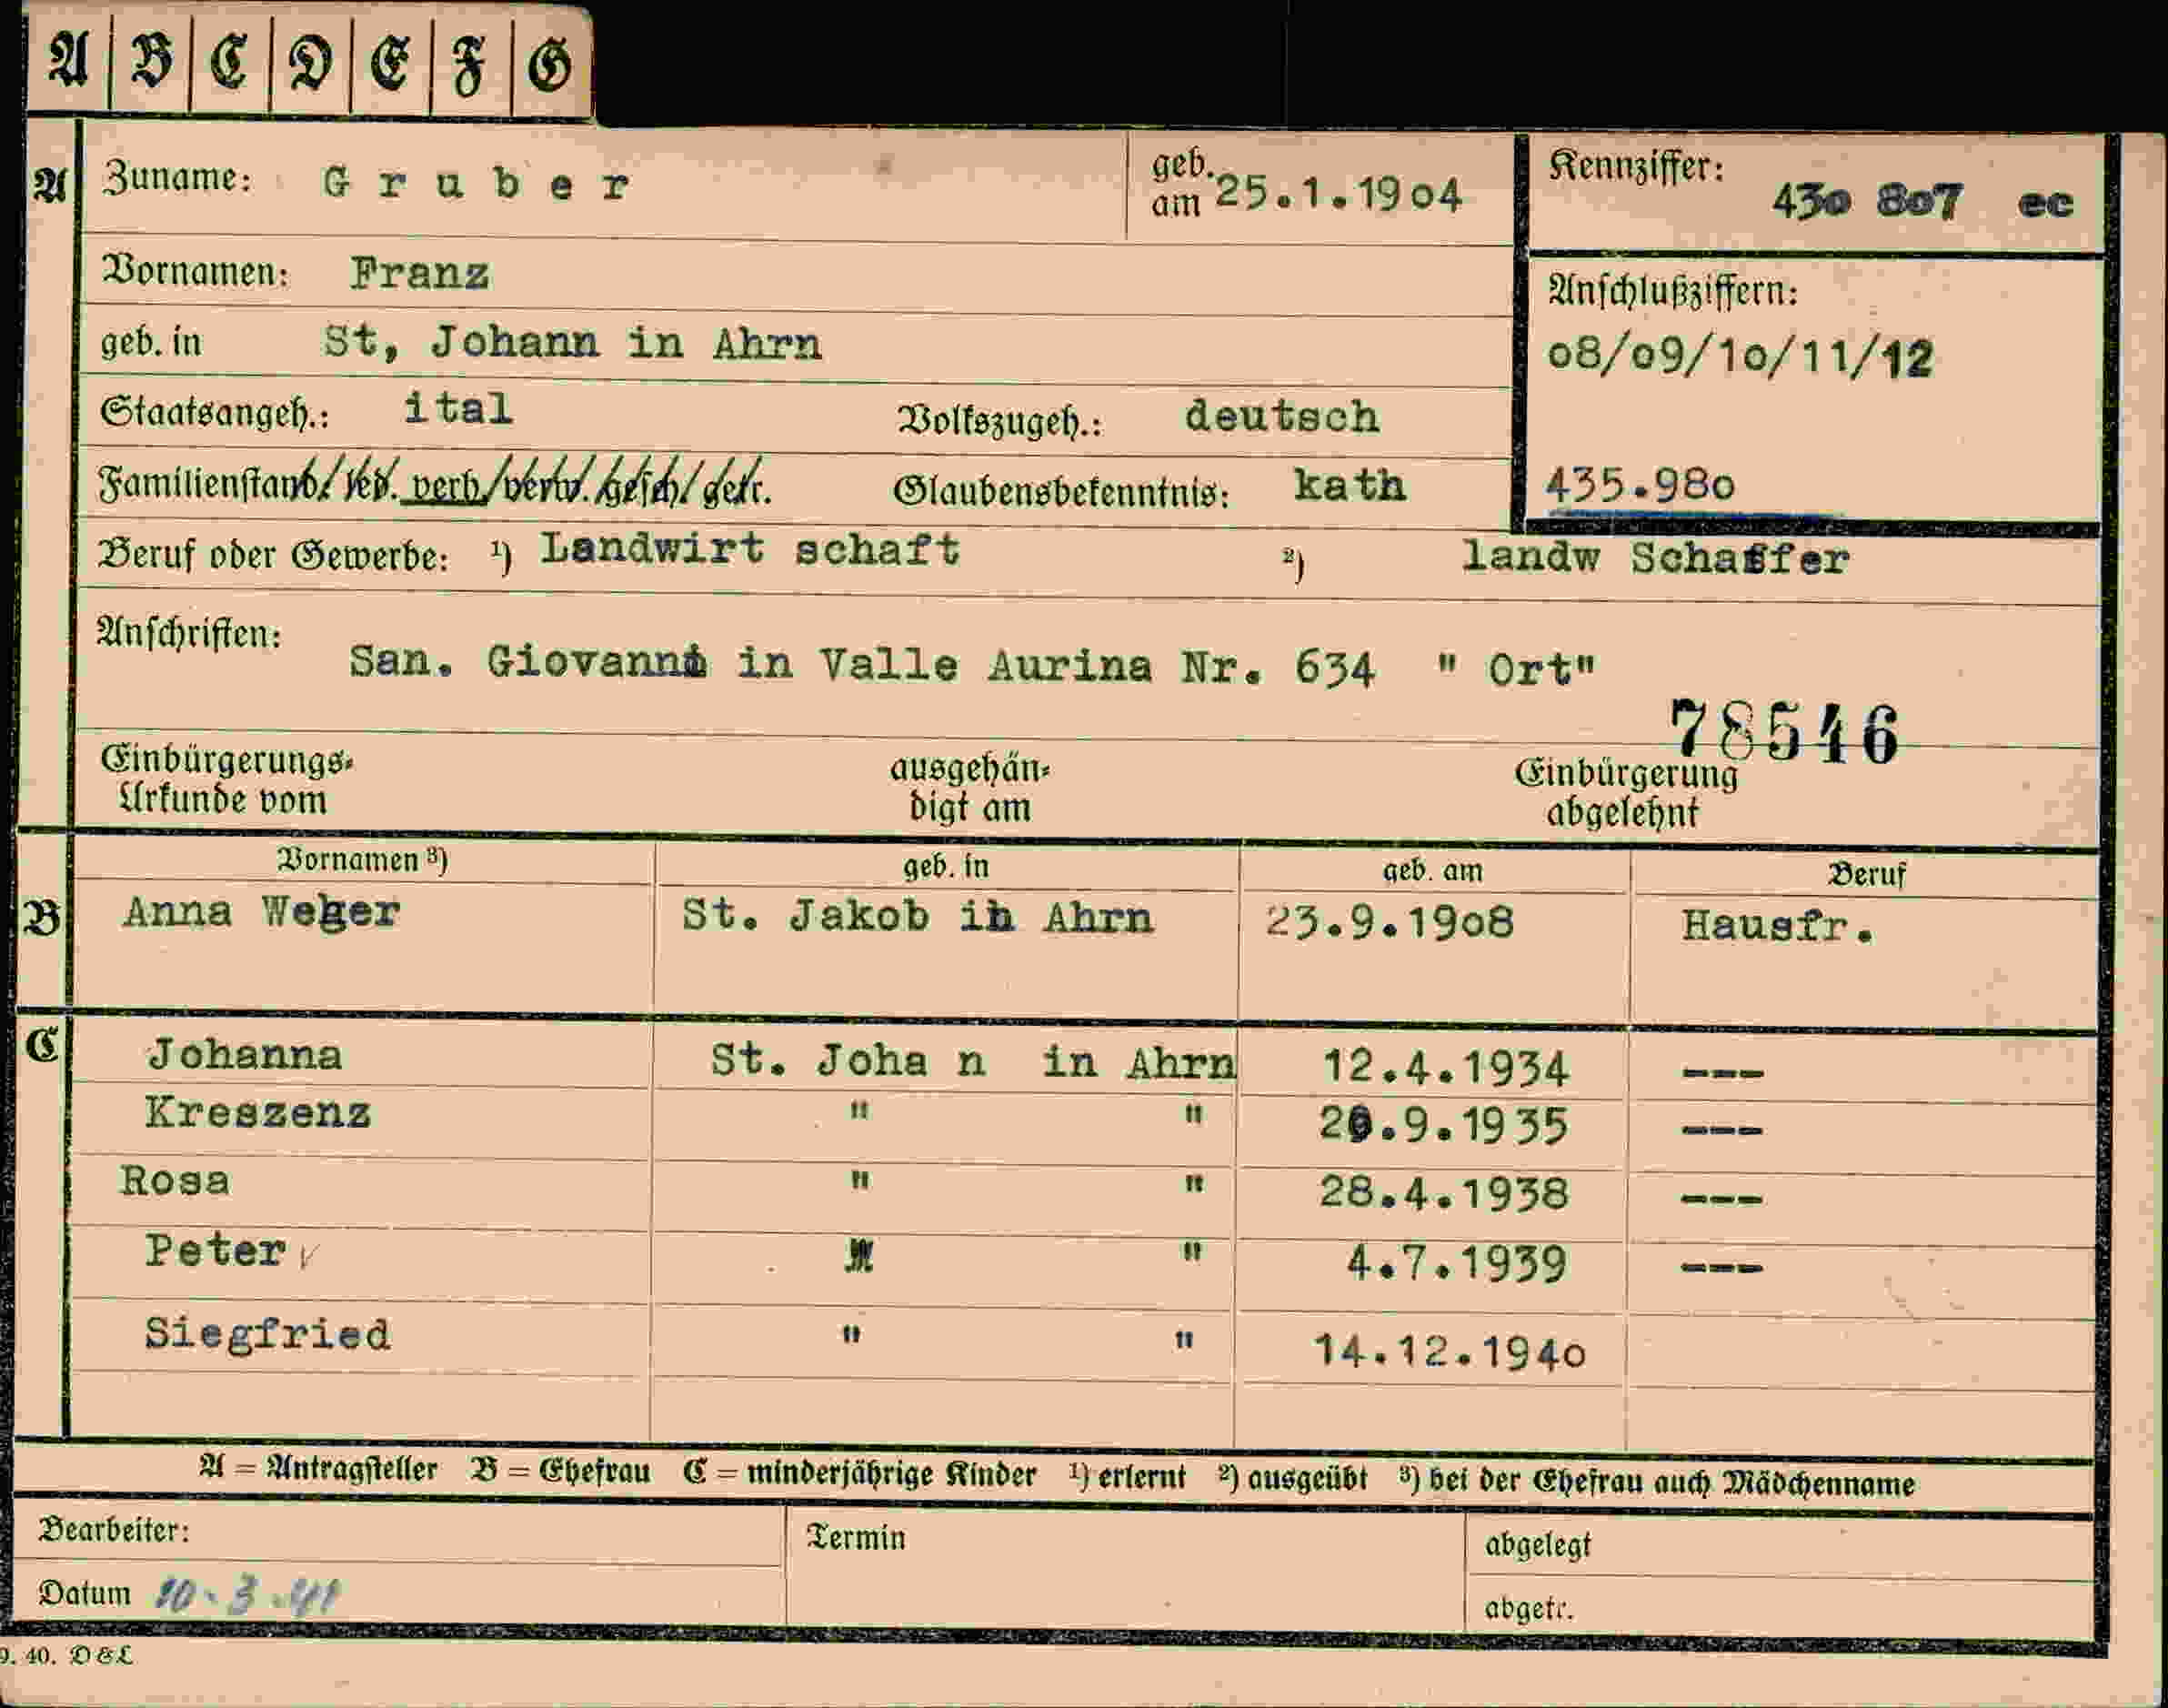 A B C D E F G
A Zuname: Gruber geb. am 25.1.1904 Kennziffer: 430 807 ec
Vornamen: Franz
Anschlußziffern:
geb. in St, Johann in Ahrn 08/09/10/11/12
Staatsangeh.: ital Volkszugeh.: deutsch
Familienstand/led. verh/verw./gesch/getr. Glaubensbekenntnis: kath 435.980
Beruf oder Gewerbe: 1) Landwirt schaft 2) landw Schaffer
Anschriften:
San. Giovanni in Valle Aurina Nr. 634 " Ort"
78546
Einbürgerungs- ausgehän- Einbürgerung
Urkunde vom digt am abgelehnt
Vornamen 3) geb. in geb. am Beruf
B Anna Weger St. Jakob in Ahrn 23.9.1908 Hausfr.
C Johanna St. Joha n in Ahrn 12.4.1934 ---
Kreszenz " " .9.1935 ---
Rosa " " 28.4.1938 ---
Peter " 4.7.1939 ---
Siegfried " " 14.12.1940
A = Antragsteller B = Ehefrau C = minderjährige Kinder 1) erlernt 2) ausgeübt 3) bei der Ehefrau auch Mädchenname
Bearbeiter: Termin abgelegt
Datum 10.3.41 abgetr.
9. 40. D & L